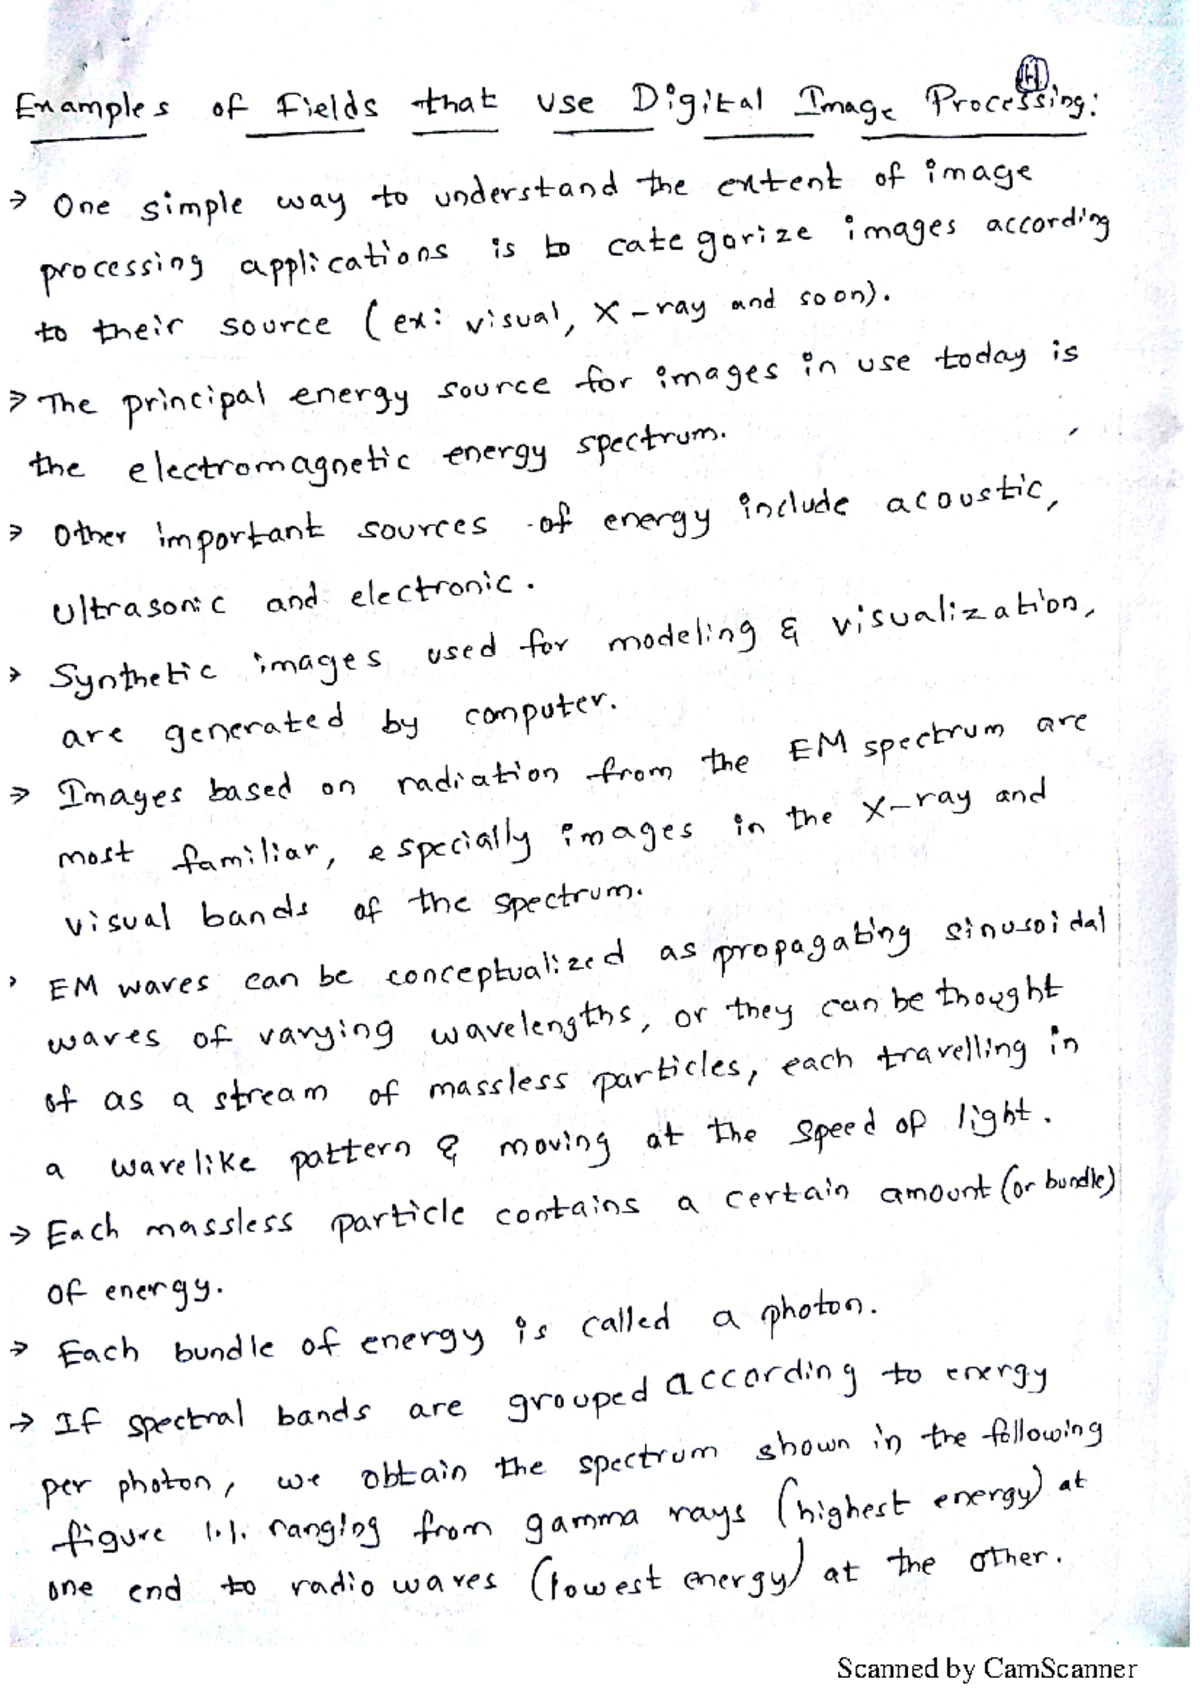 Examples of Fields that use Digital Image Processing:
→ One simple way to understand the extent of image
processing applications is to categorize images according
to their source (ex: visual, X-ray and soon).
→ The principal energy source for images in use today is
the electromagnetic energy spectrum.
→ Other important sources of energy include acoustic,
ultrasonic and electronic.
→ Synthetic images used for modeling & visualization,
are generated by computer.
→ Images based on radiation from the EM spectrum are
most familiar, especially images in the X-ray and
visual bands of the spectrum.
→ EM waves can be conceptualized as propagating sinusoidal
waves of varying wavelengths, or they can be thought
of as a stream of massless particles, each travelling in
a wavelike pattern & moving at the speed of light.
→ Each massless particle contains a certain amount (or bundle)
of energy.
→ Each bundle of energy is called a photon.
→ If spectral bands are grouped according to energy
per photon, we obtain the spectrum shown in the following
figure 1.1. ranging from gamma rays (highest energy) at
one end to radio waves (lowest energy) at the other.
Scanned by CamScanner